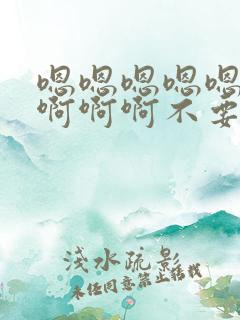 嗯嗯嗯嗯嗯
啊啊啊不要
浅水疏影
未经同意禁止转载